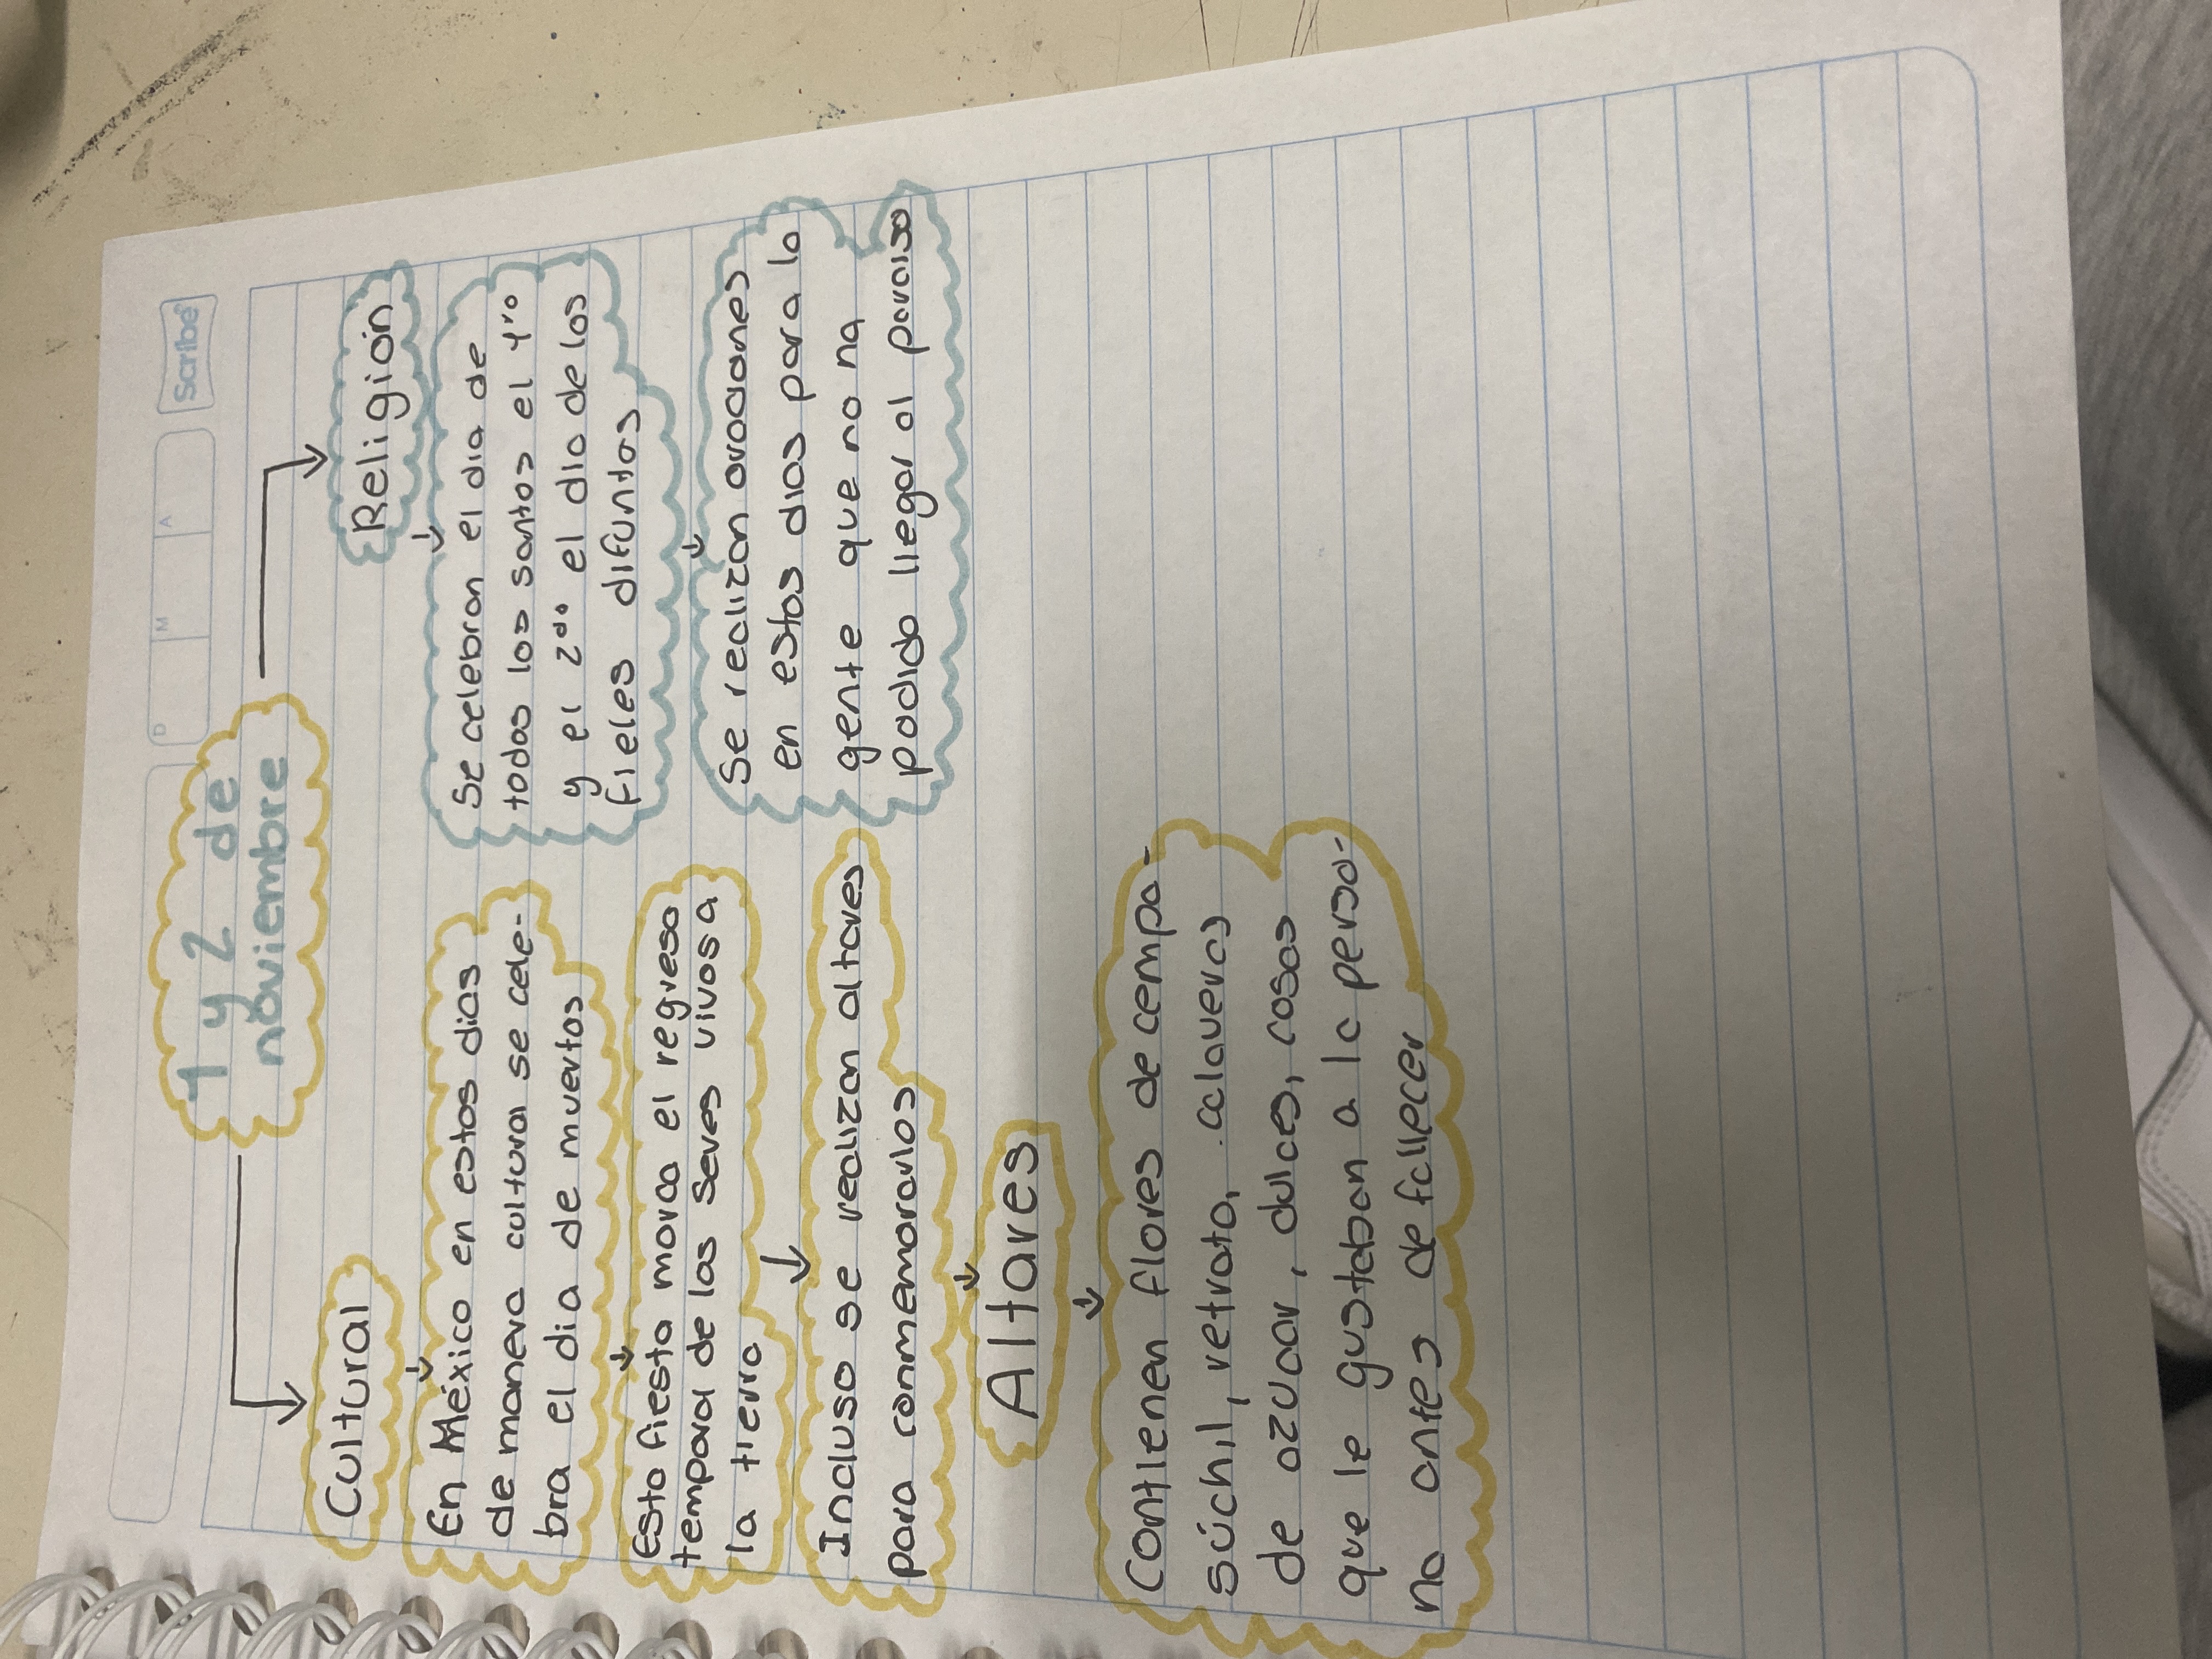 Scribe
D M A
1 y 2 de
noviembre
Cultural
En México en estos dias
de manera cultural se cele-
bra el dia de muertos
Esta fiesta marca el regreso
temporal de los seres vivos a
la tierra
Incluso se realizan altares
para conmemorarlos
Altares
Contienen flores de cempa-
súchil, retrato, calaveras
de azucar, dulces, cosas
que le gustaban a la perso-
na antes de fallecer
Religión
Se celebran el dia de
todos los santos el 1ro
y el 2do el dia de los
fieles difuntos
Se realizan oraciones
en estos dias para la
gente que no na
podido llegar al paraiso